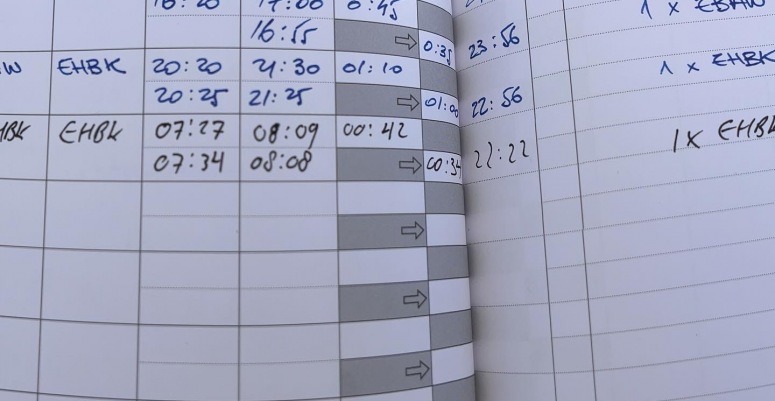 17:00 0:45
16:55 0:35 23:56
EHBK 20:20 21:30 01:10 1 x EHBK
20:25 21:25 22:56
EHBK 07:27 08:09 00:42 1x
07:34 08:08 00:34 22:22